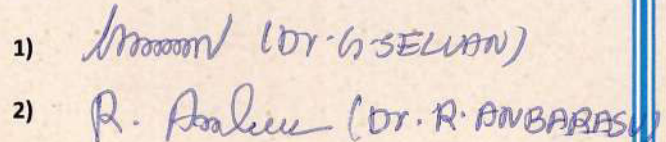 1) (Dr. G. SELVAN)
2) R. Anbu (Dr. R. ANBARASU)